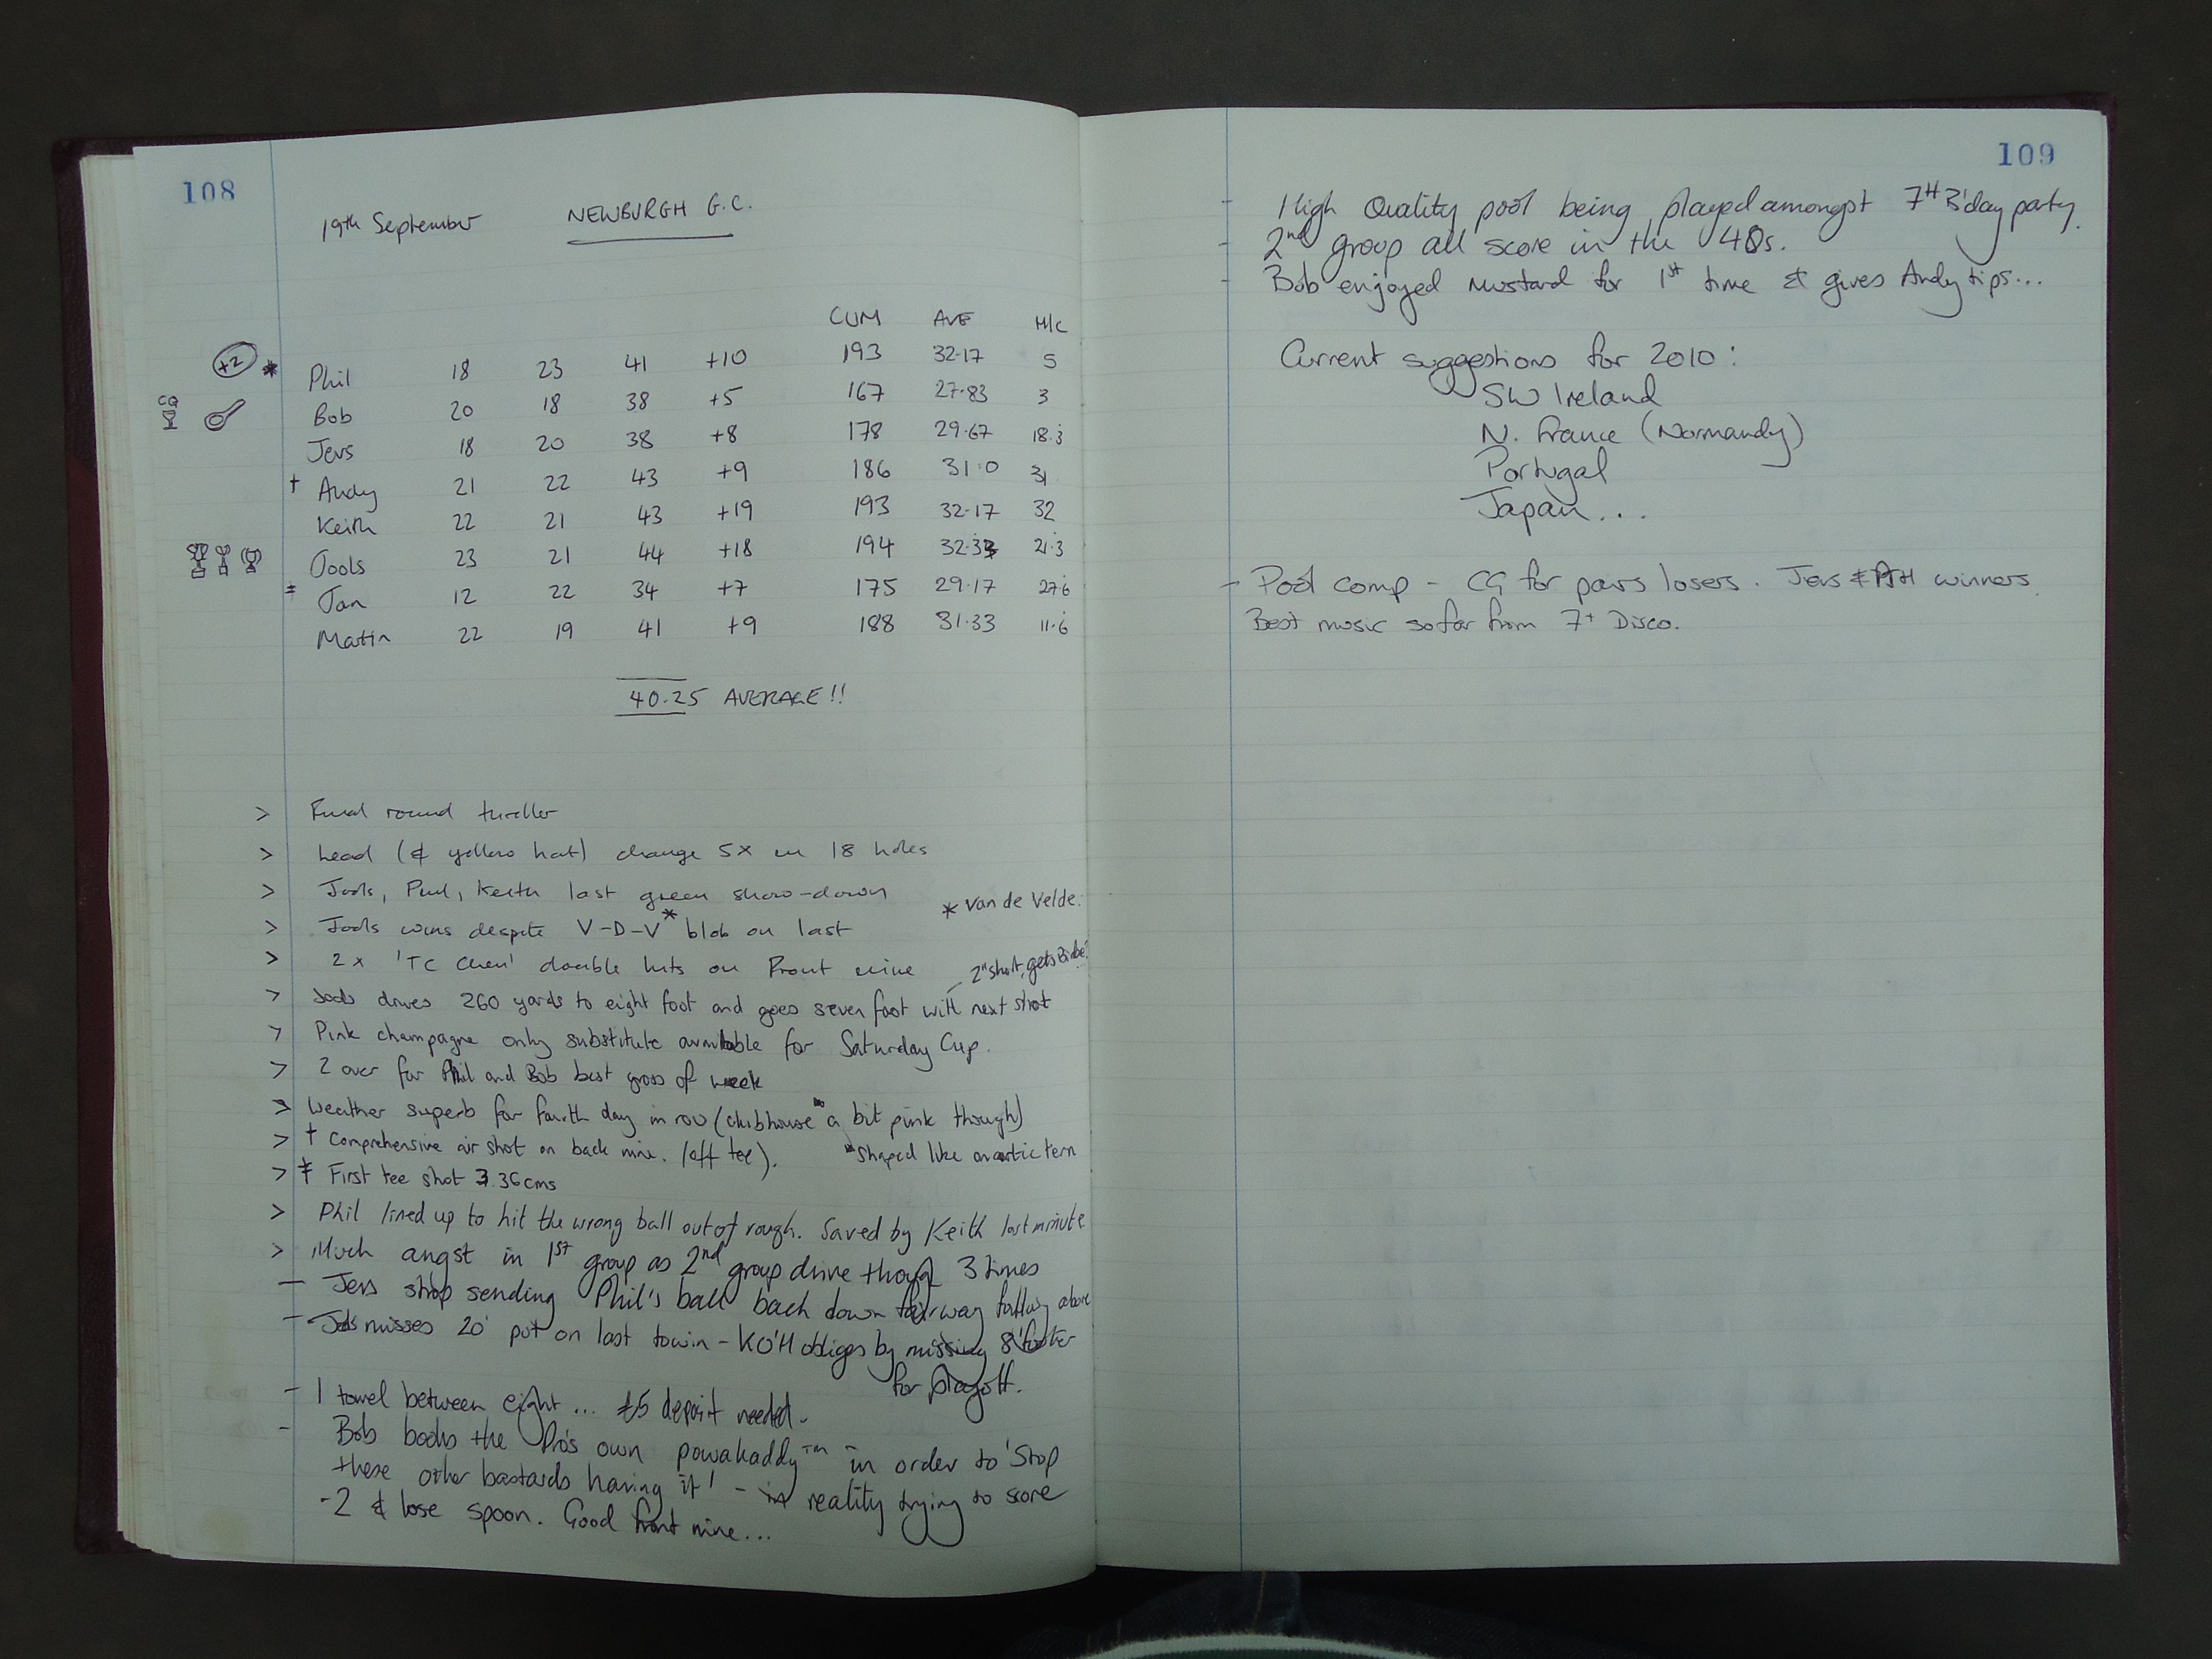 108
19th September NEWBURGH G.C.
CUM AVE H/C
+2 * Phil 18 23 41 +10 193 32.17 5
CG Bob 20 18 38 +5 167 27.83 3
Jevs 18 20 38 +8 178 29.67 18.3
† Andy 21 22 43 +9 186 31.0 31
Keith 22 21 43 +19 193 32.17 32
Jools 23 21 44 +18 194 32.33 21.3
‡ Jan 12 22 34 +7 175 29.17 27.6
Martin 22 19 41 +9 188 31.33 11.6
40.25 AVERAGE!!
> Final round thriller
> Lead (& yellow hat) change 5x in 18 holes
> Jools, Phil, Keith last green show-down
* Van de Velde.
> Jools wins despite V-D-V* blob on last
> 2x 'TC Chen' double hits on front nine
2" short, gets
> Jools drives 260 yards to eight foot and goes seven foot with next shot
> Pink champagne only substitute available for Saturday Cup.
> 2 over for Phil and Bob best gross of week
> Weather superb for fourth day in row (clubhouse a bit pink though)
> † Comprehensive air shot on back nine. (off tee).
shaped like an arctic tern
> ‡ First tee shot 3.36cms
> Phil lined up to hit the wrong ball out of rough. Saved by Keith last minute
> Much angst in 1st group as 2nd group drive though 3 times
- Jevs stop sending Phil's ball back down fairway following above
- misses 20' put on last to win - KO'H obliges by missing 8 footer
for playoff.
- 1 towel between eight... £5 deposit needed.
- Bob books the Pro's own powakaddy™ in order to 'Stop
these other bastards having it' - in reality trying to score
-2 & lose spoon. Good front nine...
109
- High Quality pool being played amongst 7H B'day party.
- 2nd group all score in the 40s.
- Bob enjoyed mustard for 1st time & gives Andy tips...
Current suggestions for 2010:
SW Ireland
N. France (Normandy)
Portugal
Japan...
- Pool comp - CG for pairs losers. Jevs & PJH winners.
Best music so far from 7+ Disco.